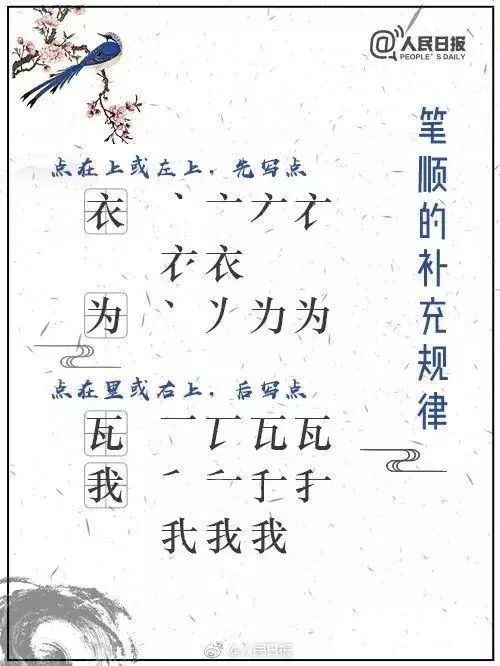 @人民日报
PEOPLE'S DAILY
笔顺的补充规律
点在上或左上，先写点
衣 丶 亠 𠂇 衣
衣 衣
为 丶 丿 为 为
点在里或右上，后写点
瓦 一 瓦 瓦
我 丿 二 于 手
我 我 我
@人民日报